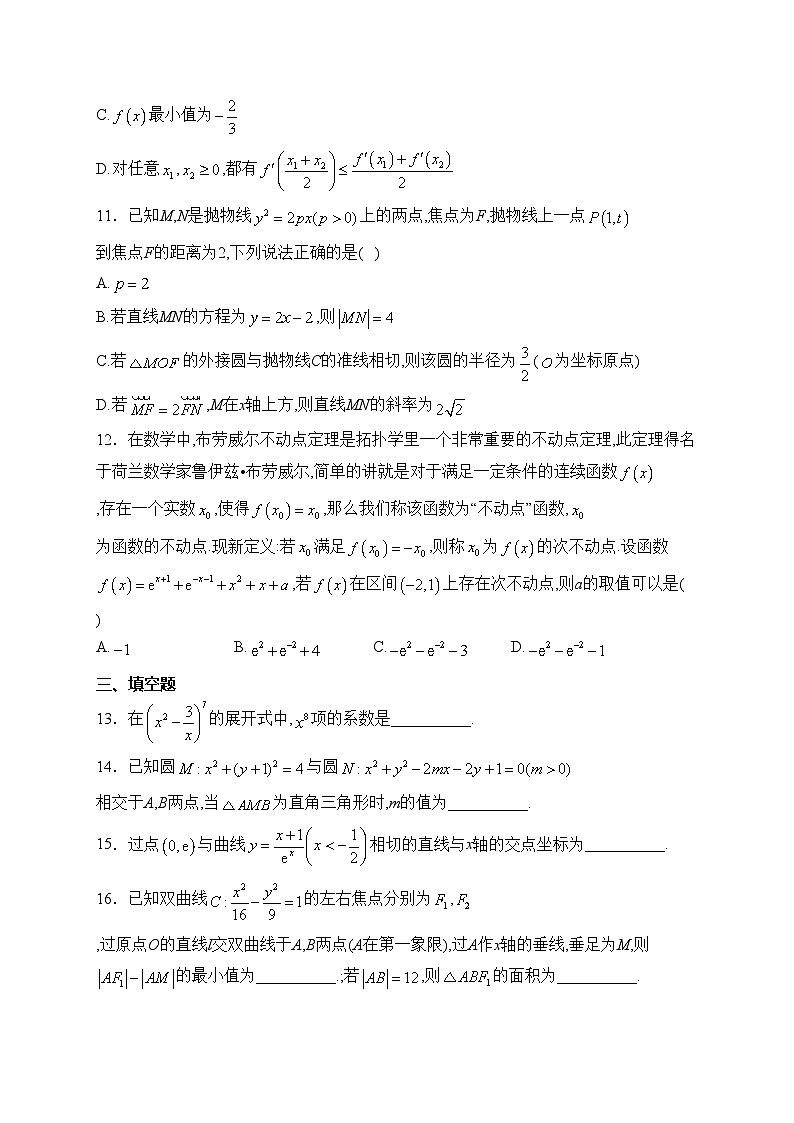 C. f(x)最小值为 -2/3
D.对任意 x₁, x₂ ≥ 0,都有 f′((x₁+x₂)/2) ≤ (f′(x₁)+f′(x₂))/2
11．已知M,N是抛物线 y² = 2px(p > 0) 上的两点,焦点为F,抛物线上一点 P(1,t)
到焦点F的距离为2,下列说法正确的是( )
A. p = 2
B.若直线MN的方程为 y = 2x − 2 ,则 |MN| = 4
C.若 △MOF 的外接圆与抛物线C的准线相切,则该圆的半径为 3/2 ( O 为坐标原点)
D.若 MF = 2FN ,M在x轴上方,则直线MN的斜率为 2√2
12．在数学中,布劳威尔不动点定理是拓扑学里一个非常重要的不动点定理,此定理得名
于荷兰数学家鲁伊兹•布劳威尔,简单的讲就是对于满足一定条件的连续函数 f(x)
,存在一个实数 x₀ ,使得 f(x₀) = x₀ ,那么我们称该函数为“不动点”函数, x₀
为函数的不动点.现新定义:若 x₀ 满足 f(x₀) = −x₀ ,则称 x₀ 为 f(x) 的次不动点.设函数
f(x) = eˣ⁺¹ + e⁻ˣ⁻¹ + x² + x + a ,若 f(x) 在区间 (−2,1) 上存在次不动点,则a的取值可以是(
)
A. −1 B. e² + e⁻² + 4 C. −e² − e⁻² − 3 D. −e² − e⁻² − 1
三、填空题
13．在 (x² − 3/x)⁷ 的展开式中, x⁸ 项的系数是__________.
14．已知圆 M : x² + (y +1)² = 4 与圆 N : x² + y² − 2mx − 2y + 1 = 0(m > 0)
相交于A,B两点,当 △AMB 为直角三角形时,m的值为__________.
15．过点 (0,e) 与曲线 y = (x+1)/eˣ (x < −1/2) 相切的直线与x轴的交点坐标为__________.
16．已知双曲线 C : x²/16 − y²/9 = 1 的左右焦点分别为 F₁ , F₂
,过原点O的直线l交双曲线于A,B两点(A在第一象限),过A作x轴的垂线,垂足为M,则
|AF₁| − |AM| 的最小值为__________.;若 |AB| = 12 ,则 △ABF₁ 的面积为__________.